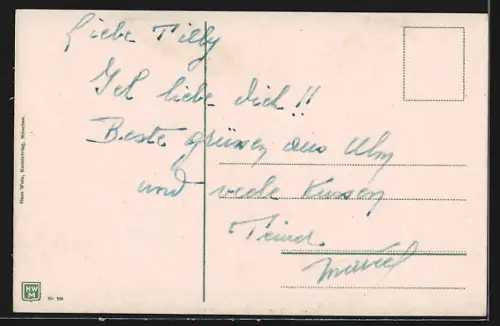 Liebe Tilly
Ich liebe dich!!
Beste grüssen aus Ulm
und viele Kussen
Hans Wörle, Kunstverlag, München.
HW
M
Nr.